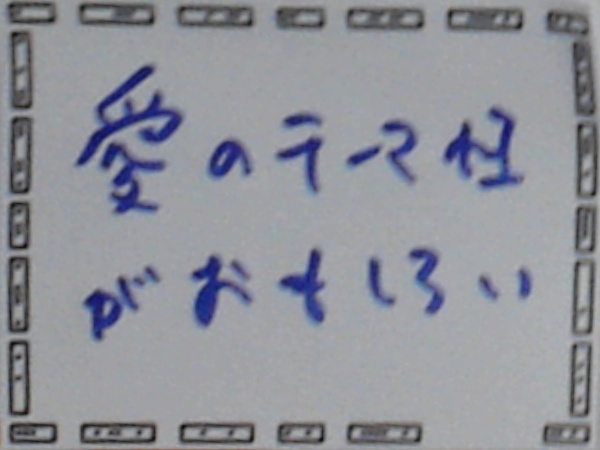 愛のテーマ性
がおもしろい